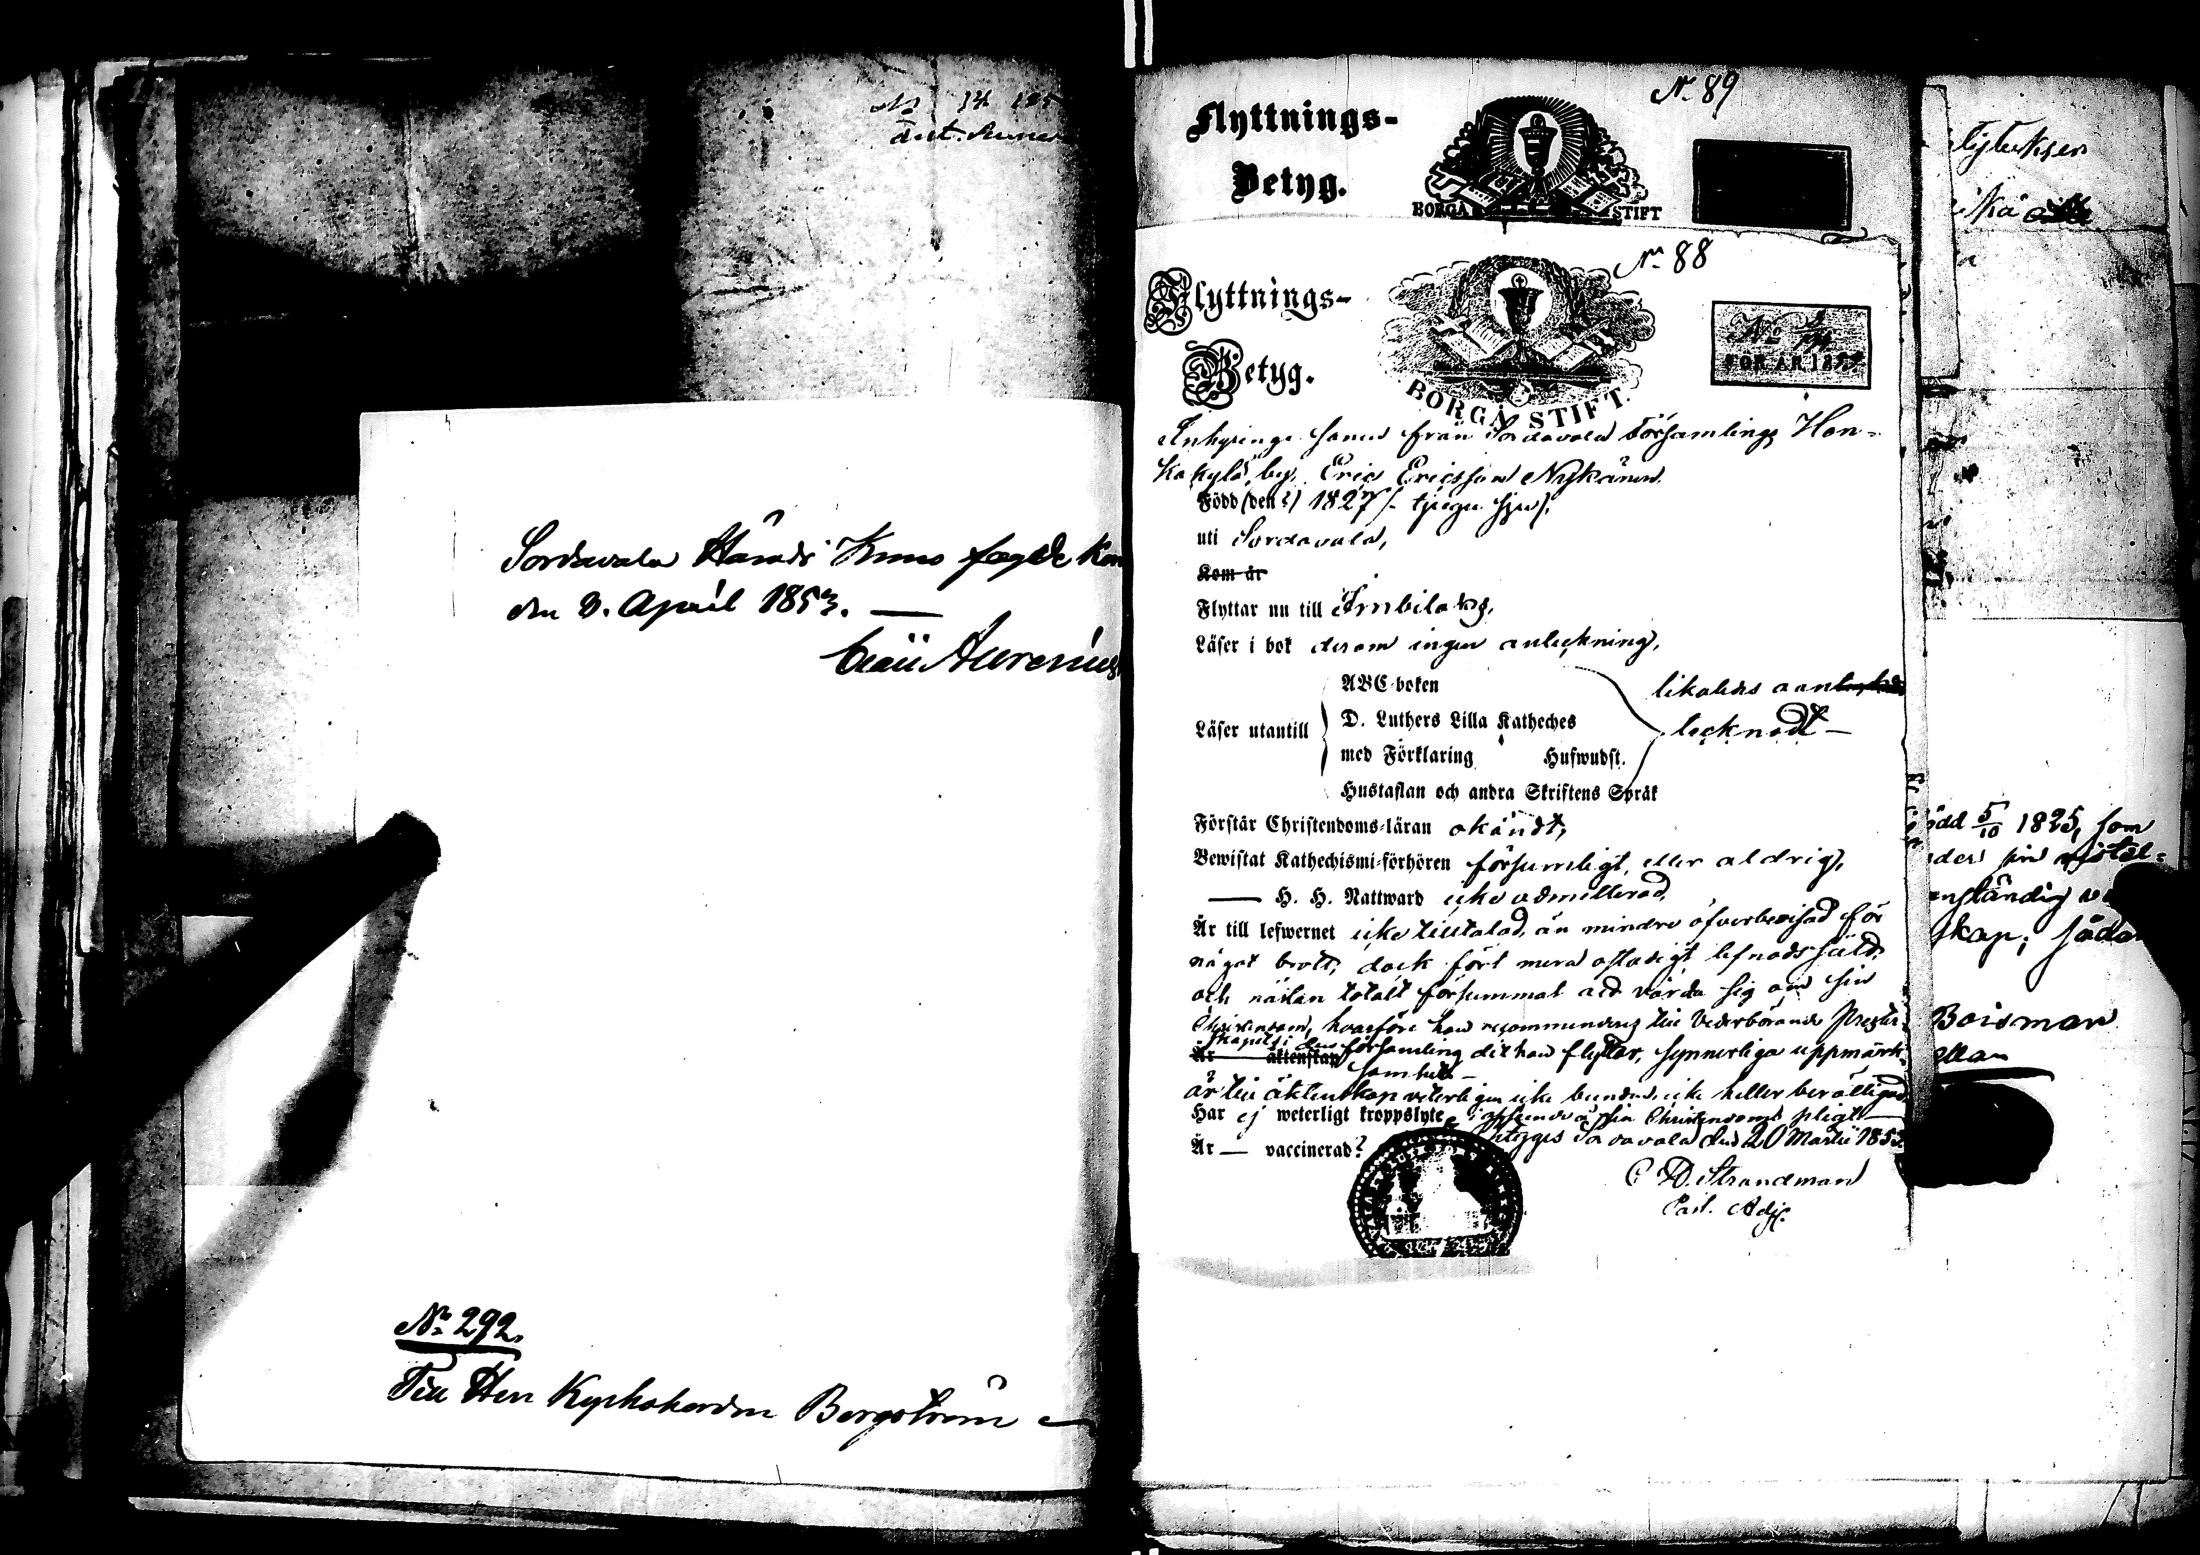 Sordavala Härads Krono fogde Kon
den 3. April 1853. —
No 292.
Till Herr Kyrkoherden Bergström
No 89
Flyttnings-
Betyg.
BORGÅ STIFT
No 88
Flyttnings-
Betyg.
BORGÅ STIFT.
No
FÖR ÅR 185
Inhysinge sonen från Sordavala Församlings Hon-
kakylä by, Eric Ericsson Nykänen
Född (den ?) 1827 /: tjugu sju /.
uti Sordavala,
Kom år
Flyttar nu till Imbilaks,
Läser i bok derom ingen anteckning,
ABC-boken
likaledes oan
Läser utantill
D. Luthers Lilla Katheches
tecknadt —
med Förklaring Hufwudst.
Hustaflan och andra Skriftens Språk
Förstår Christendoms-läran okändt,
Bewistat Kathechismi-förhören försumligt, eller aldrig,
— H. H. Nattward icke admitterad,
Är till lefwernet icke tilltalad, än mindre öfverbevisad för
något brott, dock fört mera ostadigt lefnadssätt
och nästan totalt försummat att vårda sig om sin
Christendom, hvarföre han recommenderas till Vederbörande Prester-
skapets i den församling dit han flyttar, synnerliga uppmärk-
Är äktenskap samhet —
är till äktenskap veterligen icke bunden, icke heller berättigad
Har ej weterligt kroppslyte i af sin Christendoms pligt —
Är — vaccinerad? Sordavala den 20 Martii 1853.
C D. Strandman
Past. Adj.
ödd 5/10 1825, som
skap; sådan
Boisman